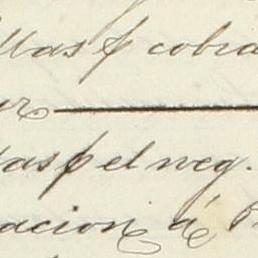 llas p cobra
ur
das p el neg.
acion á